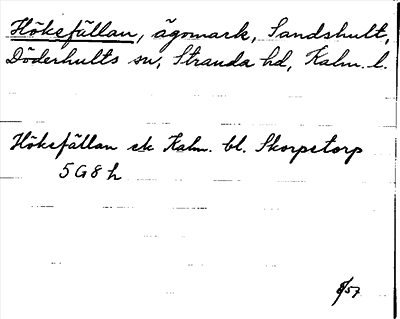 Höksfällan, ägomark, Sandshult,
Döderhults sn, Stranda hd, Kalm. l.
Höksfällan ek Kalm. bl. Skorpetorp
5G8h
8/57